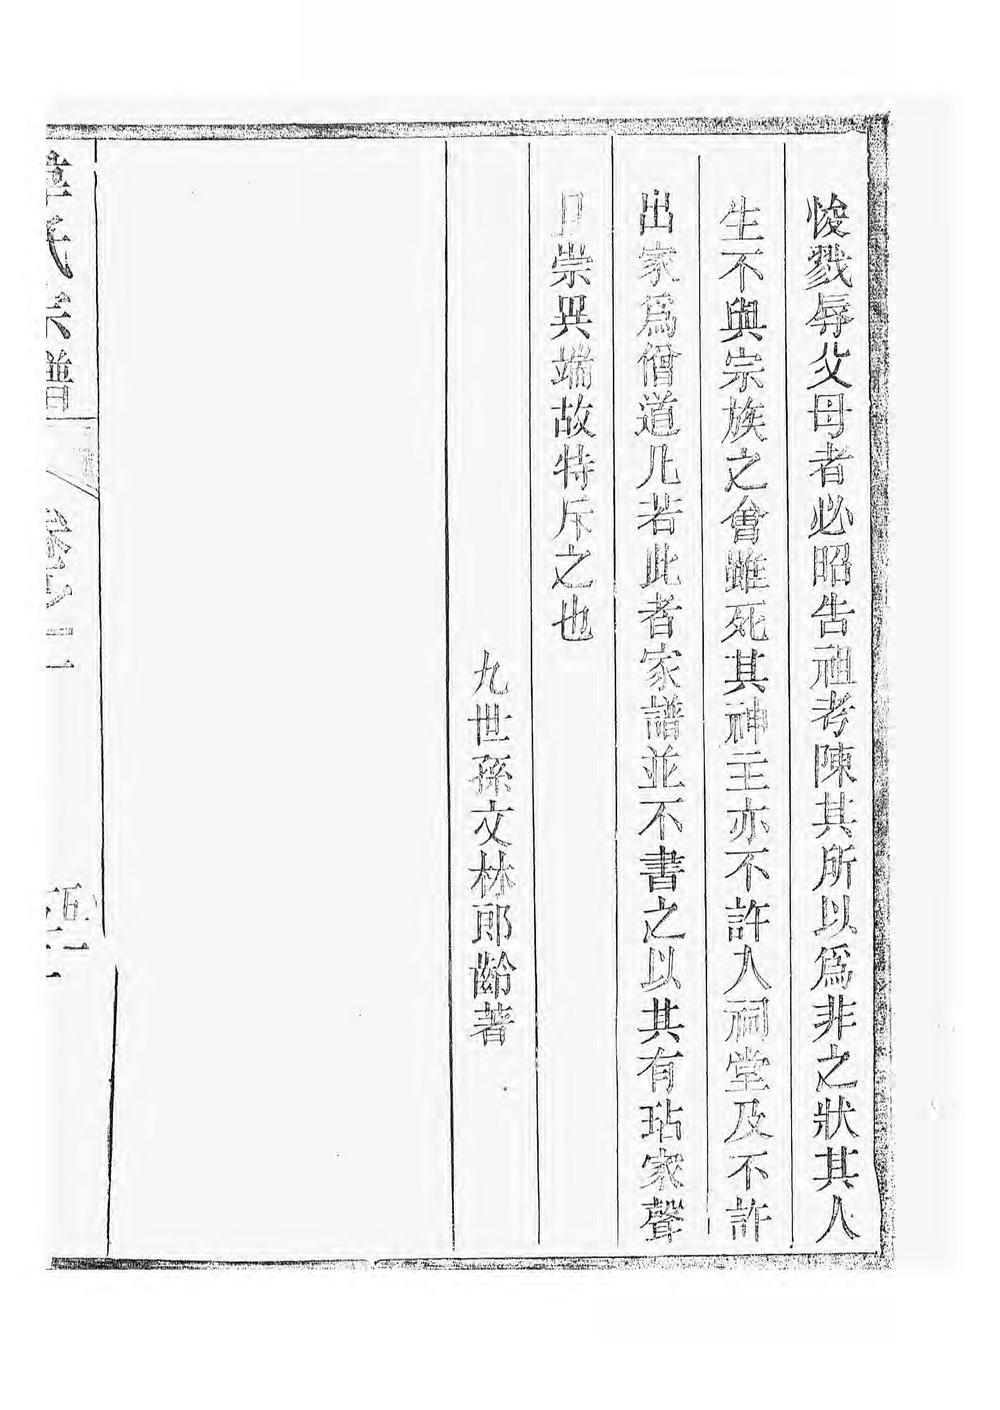 悛戮辱父母者必昭告祖考陳其所以爲非之狀其人
生不與宗族之會雖死其神主亦不許入祠堂及不許
出家爲僧道凡若此者家譜並不書之以其有玷家聲
且崇異端故特斥之也
九世孫文林郎齡著
氏宗譜
卷之二